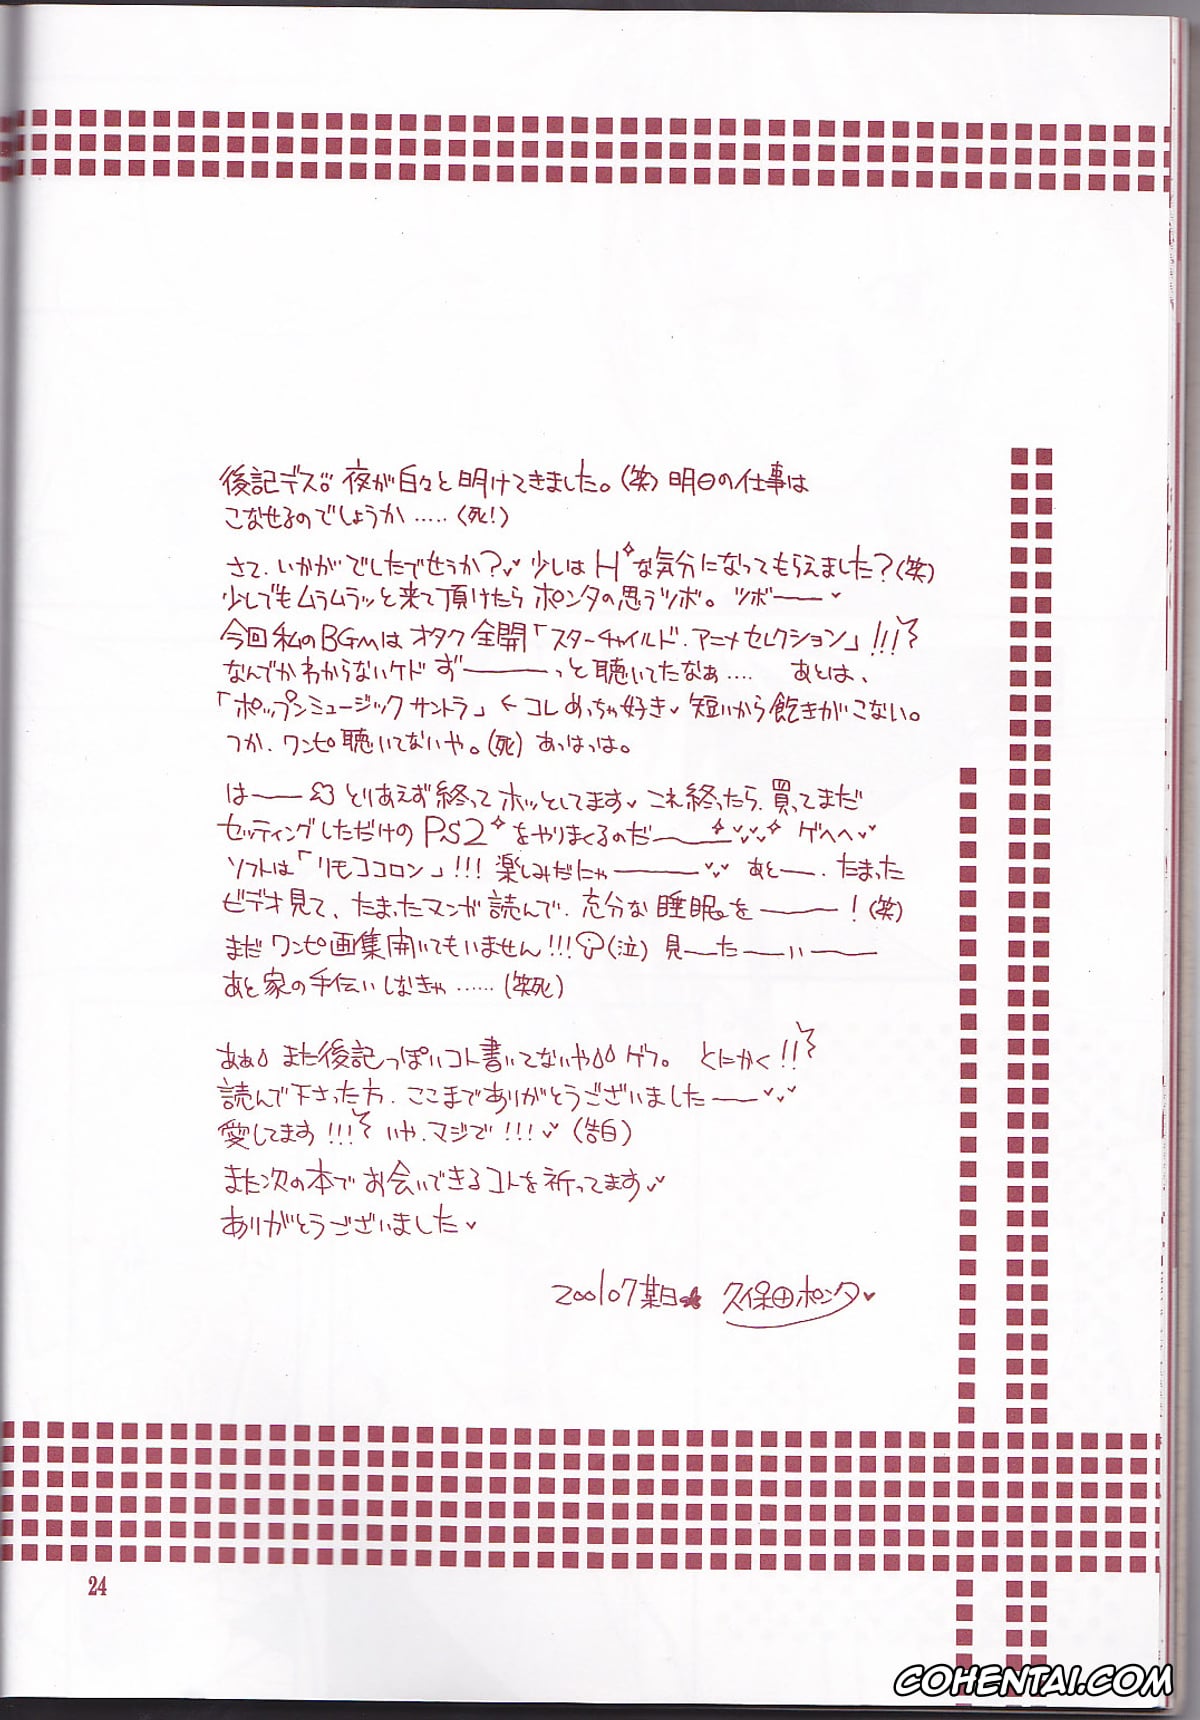 後記デス。夜が白々と明けてきました。(笑) 明日の仕事は
こなせるのでしょうか.....(死!)
さて、いかがでしたでせうか?♥少しはHな気分になってもらえました?(笑)
少しでもムラムラッと来て頂けたらポンタの思うツボ。ツボ――♥
今回私のBGMはオタク全開「スターチャイルド・アニメセレクション」!!!
なんでかわからないケドず―――っと聴いてたなぁ.... あとは、
「ポップンミュージックサントラ」←コレめっちゃ好き♥短いから飽きがこない。
つか、ワンピ聴いてないや。(死) あっはっは。
は―― とりあえず終ってホッとしてます♥これ終ったら、買ってまだ
セッティングしただけのPS2をやりまくるのだ――♥♥♥ ゲヘヘ♥
ソフトは「リモココロン」!!! 楽しみだにゃ―――♥♥ あと―、たまった
ビデオ見て、たまったマンガ読んで、充分な睡眠を―――!(笑)
まだワンピ画集開いてもいません!!!(泣) 見―た―い――
あと家の手伝いしなきゃ......(笑死)
あぁ また後記っぽいコト書いてないや ゲフ。 とにかく!!
読んで下さった方、ここまでありがとうございました――♥♥
愛してます!!! いや、マジで!!!♥ (告白)
また次の本でお会いできるコトを祈ってます♥
ありがとうございました♥
2001 07 某日★ 久保田ポンタ♥
24
COHENTAI.COM